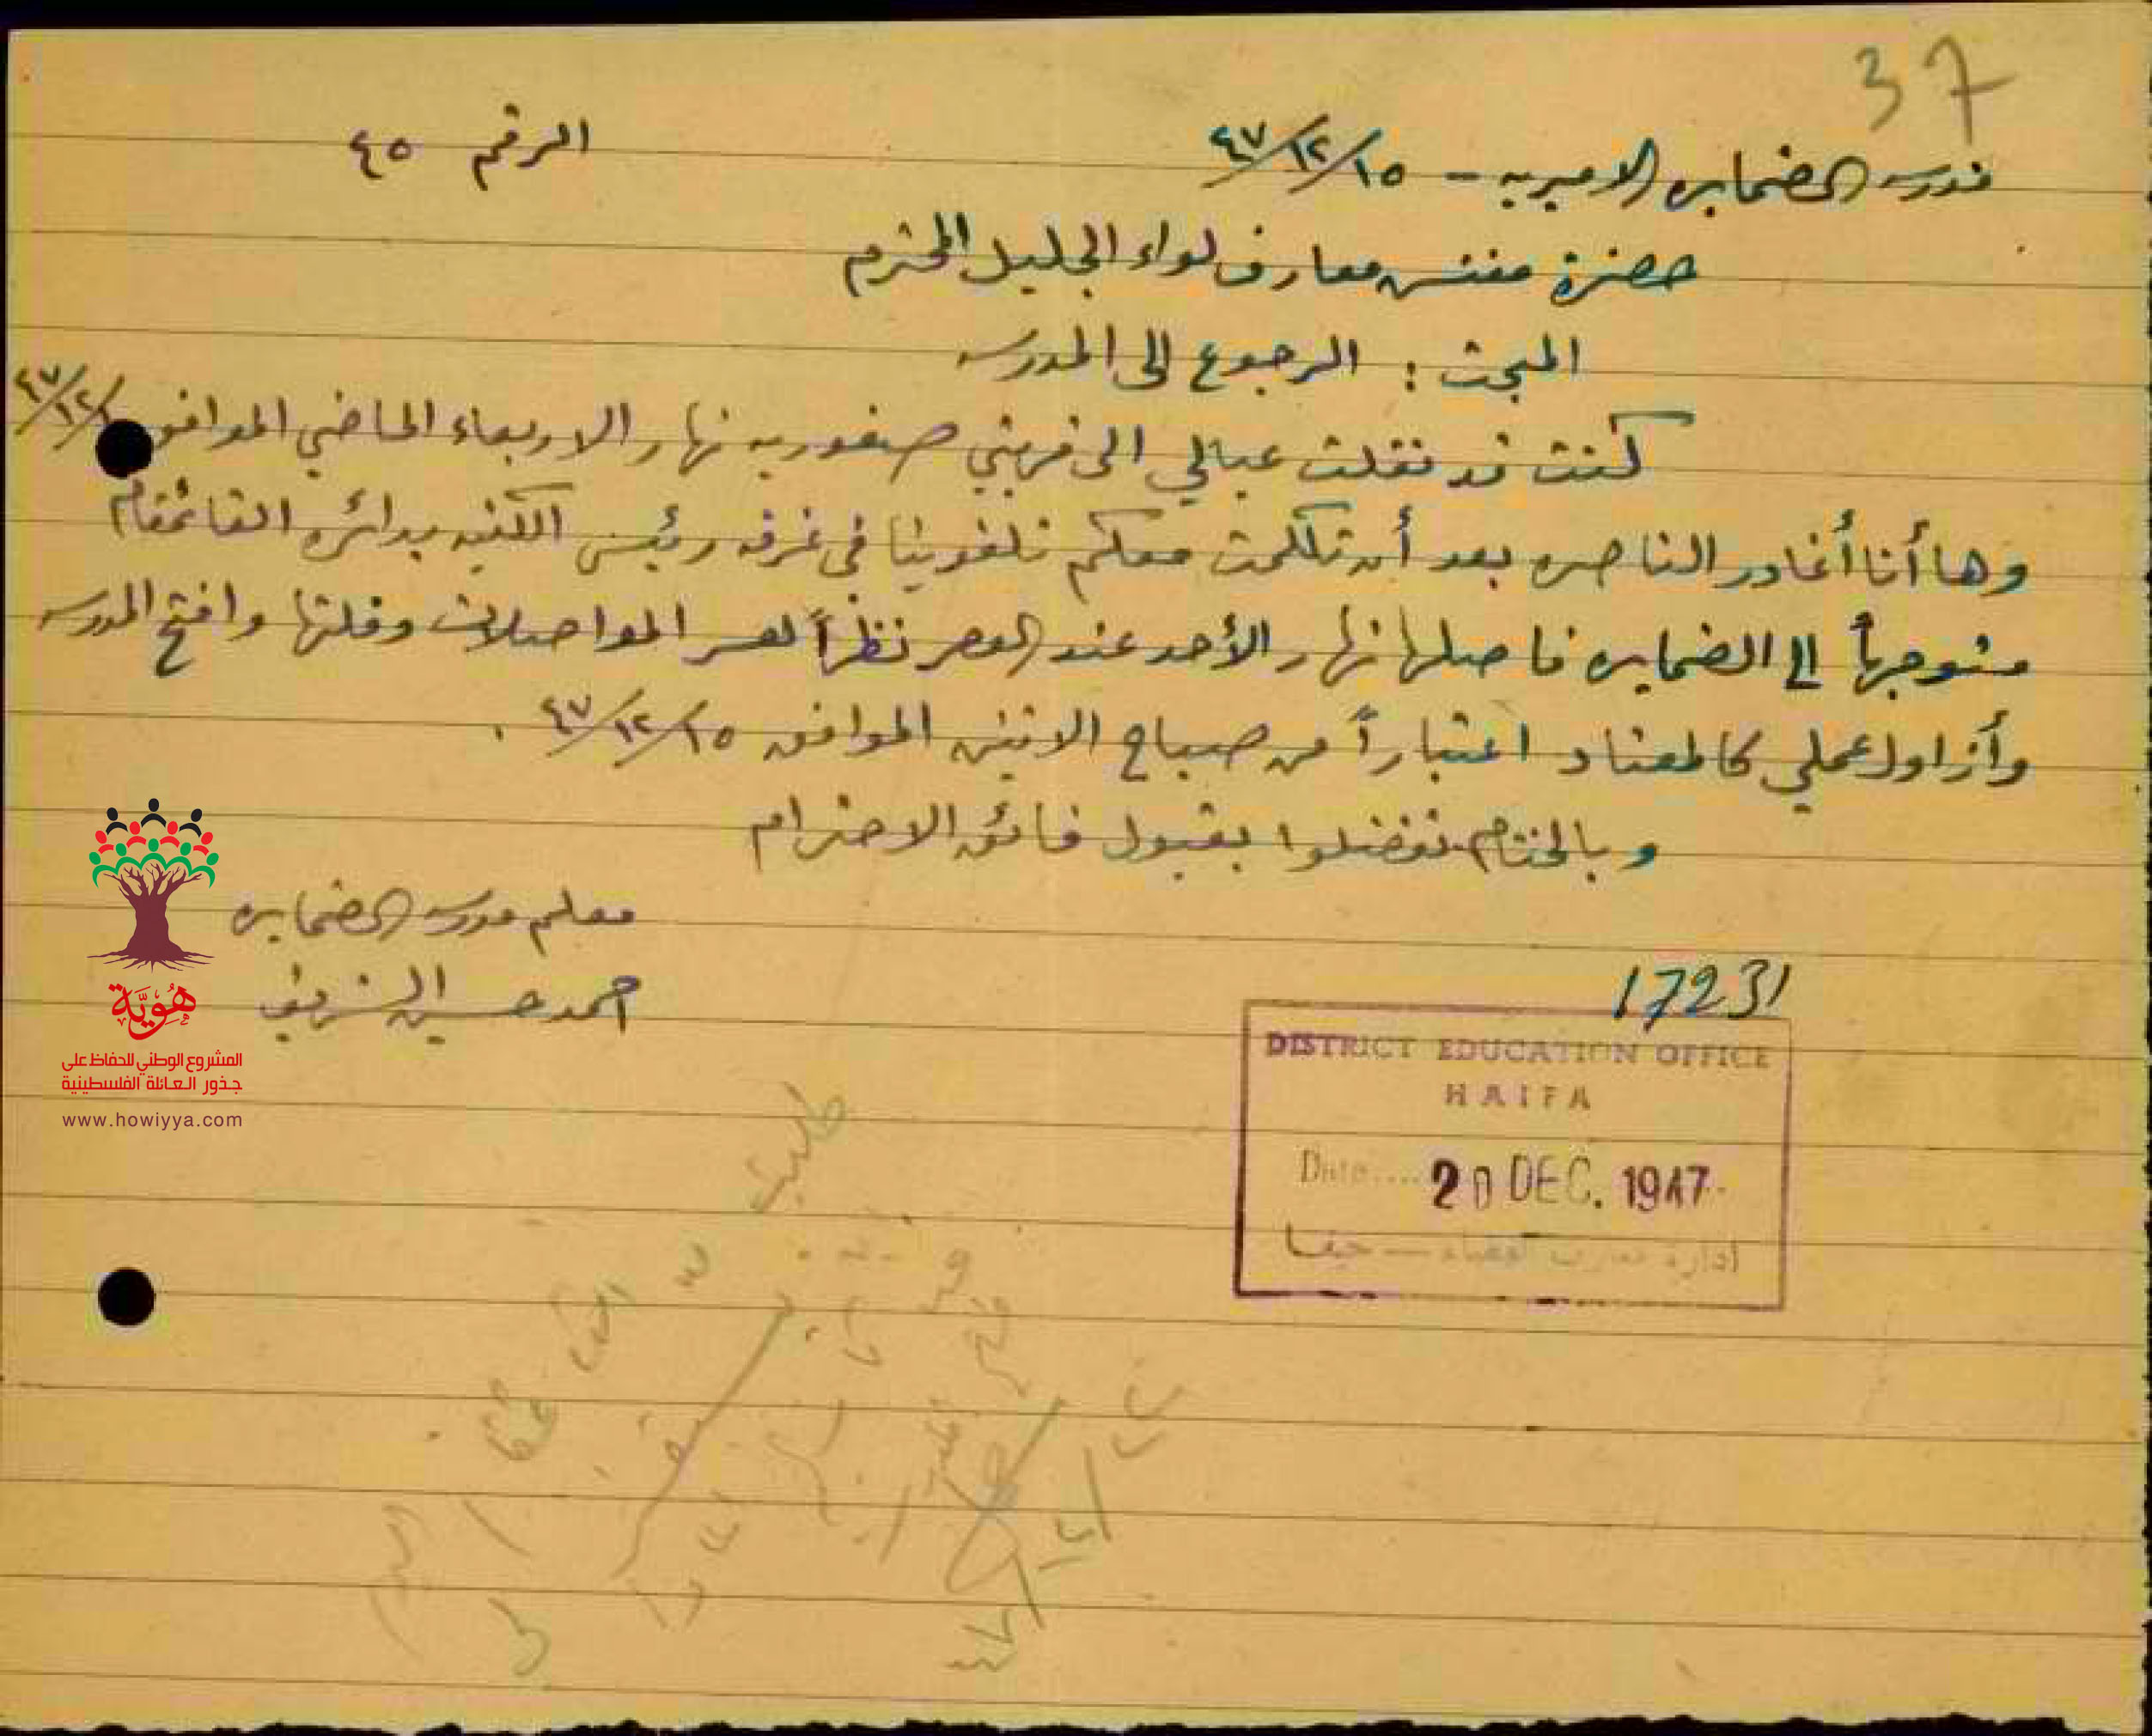 37
مدرسة الضمايره الاميريه – ١٥/١٢/٤٧ الرقم ٤٥
حضرة مفتش معارف لواء الجليل المحترم
المبحث : الرجوع الى المدرسه
كنت قد نقلت عيالي الى قريتي صفوريه نهار الاربعاء الماضي الموافق /١٢/٤٧
وها أنا أغادر الناصره بعد أن تكلمت معكم تلفونيا في غرفة رئيس الكتبه بدائرة القائمقام
متوجهاً الى الضمايره فاصلها نهار الأحد عند العصر نظراً لعسر المواصلات وقلتها وافتح المدرسه
وأزاول عملي كالمعتاد اعتباراً من صباح الاثنين الموافق ١٥/١٢/٤٧ .
وبالختام تفضلوا بقبول فائق الاحترام
معلم مدرسة الضمايره
احمد حسين الشريف
17231
DISTRICT EDUCATION OFFICE
HAIFA
Date.... 20 DEC. 1947
ادارة معارف لواء – حيفا
هُوِيَّة
المشروع الوطني للحفاظ على
جذور العائلة الفلسطينية
www.howiyya.com